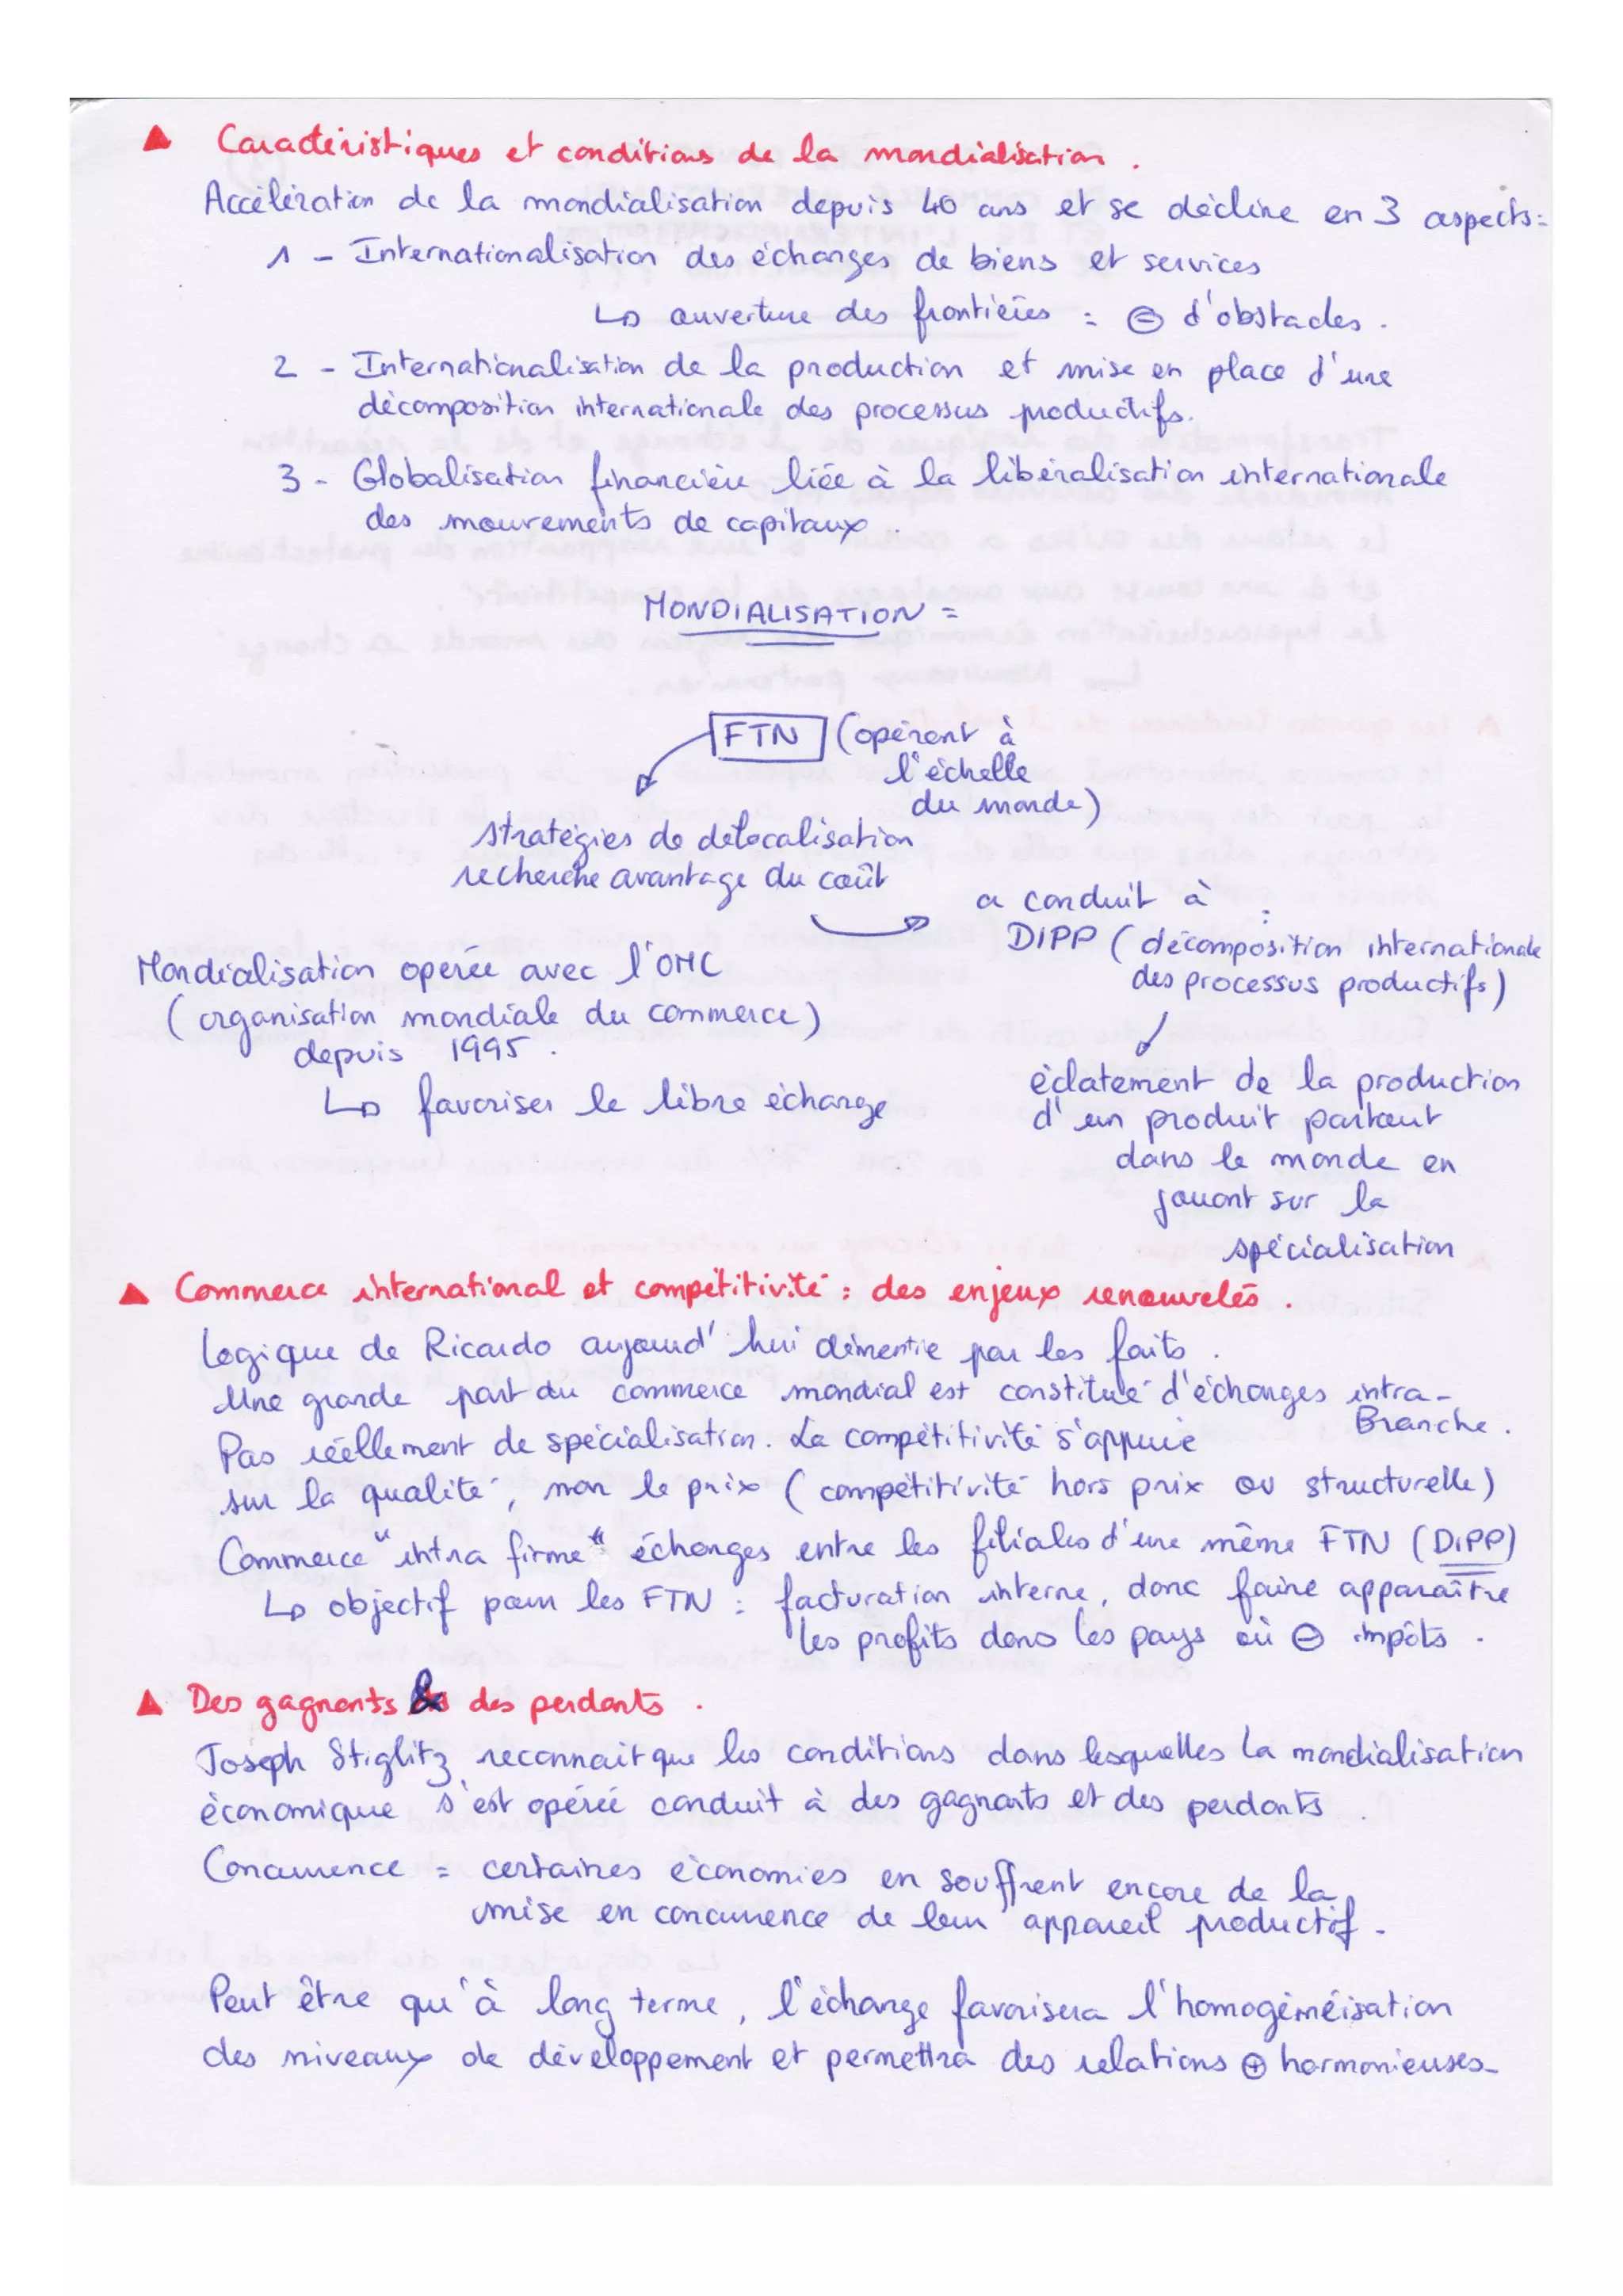 ▲ Caractéristiques et conditions de la mondialisation.
Accélération de la mondialisation depuis 40 ans et se décline en 3 aspects :
1 - Internationalisation des échanges de biens et services
↳ ouverture des frontières : ⊖ d'obstacles.
2 - Internationalisation de la production et mise en place d'une
décomposition internationale des processus productifs.
3 - Globalisation financière liée à la libéralisation internationale
des mouvements de capitaux.
MONDIALISATION =
FTN (opérent à
l'échelle
du monde)
stratégies de délocalisation
recherche avantage du coût
a conduit à :
DIPP (décomposition internationale
des processus productifs)
Mondialisation operée avec l'OMC
(organisation mondiale du commerce)
depuis 1995.
↳ favoriser le libre échange
éclatement de la production
d'un produit partout
dans le monde en
jouant sur la
spécialisation
▲ Commerce international et compétitivité : des enjeux renouvelés.
Logique de Ricardo aujourd'hui démentie par les faits.
Une grande part du commerce mondial est constitué d'échanges intra-
Branche.
Pas réellement de spécialisation. La compétitivité s'appuie
sur la qualité, non le prix (compétitivité hors prix ou structurelle)
Commerce "intra firme" échanges entre les filiales d'une même FTN (DIPP)
↳ objectif pour les FTN : facturation interne, donc faire apparaître
les profits dans les pays où ⊖ impôts.
▲ Des gagnants & des perdants.
Joseph Stiglitz reconnait que les conditions dans lesquelles la mondialisation
économique s'est opérée conduit à des gagnants et des perdants.
Concurrence = certaines économies en souffrent encore de la
mise en concurrence de leur appareil productif.
Peut être qu'à long terme, l'échange favorisera l'homogénéisation
des niveaux de développement et permettra des relations ⊕ harmonieuses.